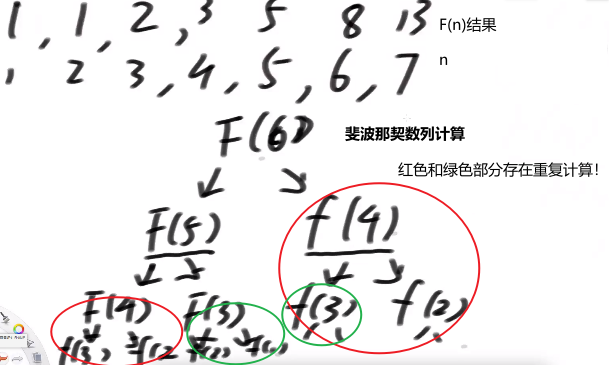 1, 1, 2, 3 5 8 13 F(n)结果
1 2 3, 4, 5, 6, 7 n
F(6)
斐波那契数列计算
红色和绿色部分存在重复计算!
F(5) f(4)
F(4) F(3) f(3) f(2)
f(3) f(2